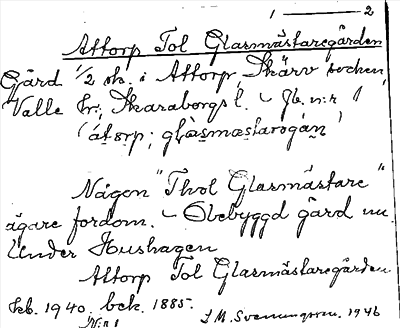 1 — 2
Attorp Tol Glasmästaregården
Gård 1/2 sk. i Attorp, Skärv socken,
Valle hr; Skaraborgs l. – Jb. n:r 1
(át ɔrp; glàsmæstarogàn)
Någon "Thol Glasmästare"
ägare fordom. – Obebyggd gård nu.
Under Hushagen
Attorp Tol Glasmästaregården
Seb. 1940. bek. 1885.
N:r 1 J. M. Svenungsson. 1946